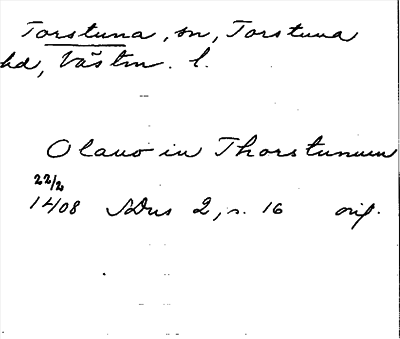 Torstuna, sn, Torstuna
hd, Västm. l.
Olauo in Thorstunum
22/2
1408 SDns 2, s. 16 orig.